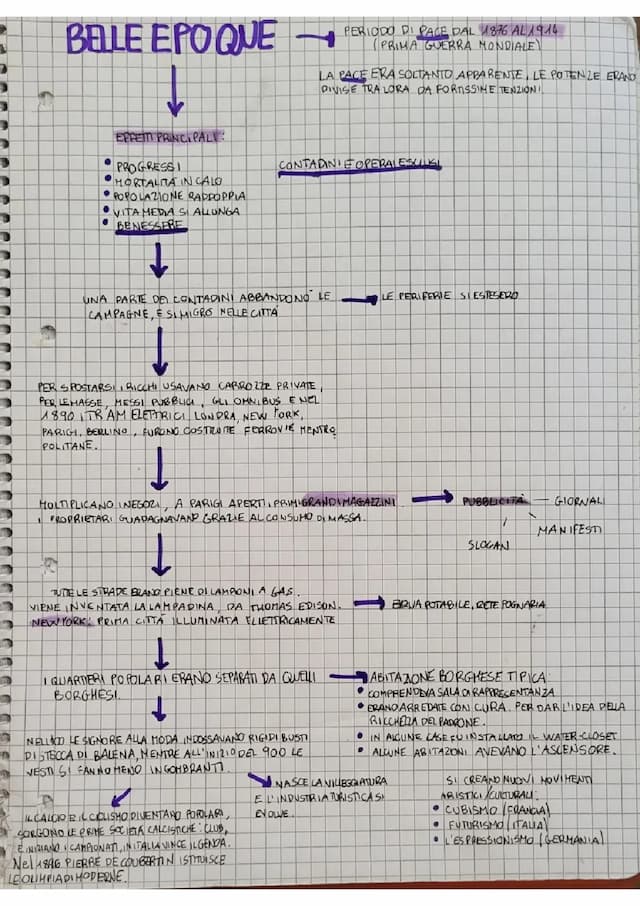 BELLE EPOQUE
PERIODO DI PACE DAL 1876 AL 1914
(PRIMA GUERRA MONDIALE)
LA PACE ERA SOLTANTO APPARENTE, LE POTENZE ERANO
DIVISE TRA LORA DA FORTISSIME TENZIONI.
EFFETTI PRINCIPALI:
• PROGRESSI
• MORTALITÀ IN CALO
• POPOLAZIONE RADDOPPIA
• VITA MEDIA SI ALLUNGA
• BENESSERE
CONTADINI E OPERAI ESCLUSI
UNA PARTE DEI CONTADINI ABBANDONÒ LE
CAMPAGNE, E SI MIGRÒ NELLE CITTÀ
LE PERIFERIE SI ESTESERO
PER SPOSTARSI, I RICCHI USAVANO CARROZZE PRIVATE,
PER LE MASSE, MESSI PUBBLICI, GLI OMNIBUS E NEL
1890 I TRAM ELETTRICI. LONDRA, NEW YORK,
PARIGI, BERLINO, FURONO COSTRUITE FERROVIE METRO
POLITANE.
MOLTIPLICANO I NEGOZI, A PARIGI APERTI I PRIMI GRANDI MAGAZZINI
I PROPRIETARI GUADAGNAVANO GRAZIE AL CONSUMO DI MASSA.
PUBBLICITÀ
GIORNALI
MANIFESTI
SLOGAN
TUTE LE STRADE ERANO PIENE DI LAMPONI A GAS.
VIENE INVENTATA LA LAMPADINA, DA THOMAS EDISON.
NEW YORK: PRIMA CITTÀ ILLUMINATA ELETTRICAMENTE
POTABILE, RETE FOGNARIA
I QUARTIERI POPOLARI ERANO SEPARATI DA QUELLI
BORGHESI.
ABITAZIONE BORGHESE TIPICA:
• COMPRENDEVA SALA DI RAPPRESENTANZA
• ERANO ARREDATE CON CURA. PER DAR L'IDEA DELLA
RICCHEZZA DEL PADRONE.
• IN ALCUNE CASE FU INSTALLATO IL WATER-CLOSET
• ALCUNE ABITAZIONI AVEVANO L'ASCENSORE.
LE SIGNORE ALLA MODA INDOSSAVANO RIGIDI BUSTI
DI STECCA DI BALENA, MENTRE ALL'INIZIO DEL 900 LE
VESTI SI FANNO MENO INGOMBRANTI.
NASCE LA VILLEGGIATURA
E L'INDUSTRIA TURISTICA SI
EVOLVE.
SI CREANO NUOVI MOVIMENTI
ARISTICI/CULTURALI:
• CUBISMO (FRANCIA)
• FUTURISMO (ITALIA)
• L'ESPRESSIONISMO (GERMANIA)
IL CALCIO E IL CICLISMO DIVENTANO POPOLARI,
SORGONO LE PRIME SOCIETÀ CALCISTICHE: CLUB,
E INIZIANO I CAMPIONATI, IN ITALIA VINCE IL GENOA.
Nel 1896 PIERRE DE COUBERTIN ISTITUISCE
LE OLIMPIADI MODERNE.